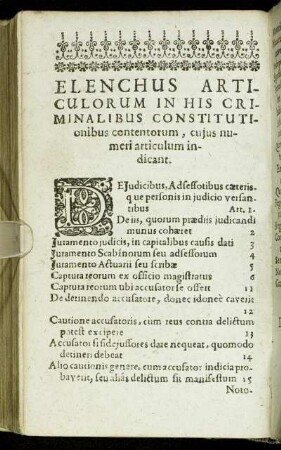 ELENCHUS ARTI-
CULORUM IN HIS CRI-
MINALIBUS CONSTITUTI-
onibus contentorum, cujus nu-
meri articulum in-
dicant.
DEJudicibus, Adsessotibus cæteris-
que personis in judicio versan-
tibus Art. 1.
De iis, quorum prædiis judicandi
munus cohæret 2
Juramento judicis, in capitalibus causis dati 3
Juramento Scabinorum seu adsessorum 4
Juramento Actuarii seu scribæ 5
Captura reorum ex officio magistratus 6
Captura reorum ubi accusator se offert 11
De detinendo accusatore, donec idoneè caverit
12
Cautione accusatoris, cum reus contra delictum
potest excipere 13
Accusator si fidejussores dare nequeat, quomodo
detineri debeat 14
Alio cautionis genere, cum accusator indicia pro-
baverit, seu aliàs delictum sit manifestum 15
Noto-